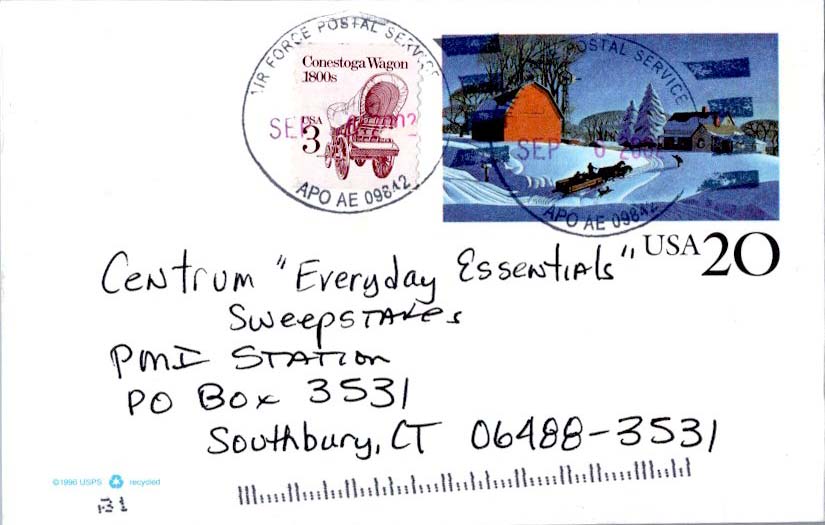 AIR FORCE POSTAL SERVICE
Conestoga Wagon
1800s
USA
3
SEP
APO AE 09842
POSTAL SERVICE
SEP 6
APO AE 09842
USA 20
Centrum "Everyday Essentials"
Sweepstakes
PMI STATION
PO BOX 3531
Southbury, CT 06488-3531
©1996 USPS recycled
31